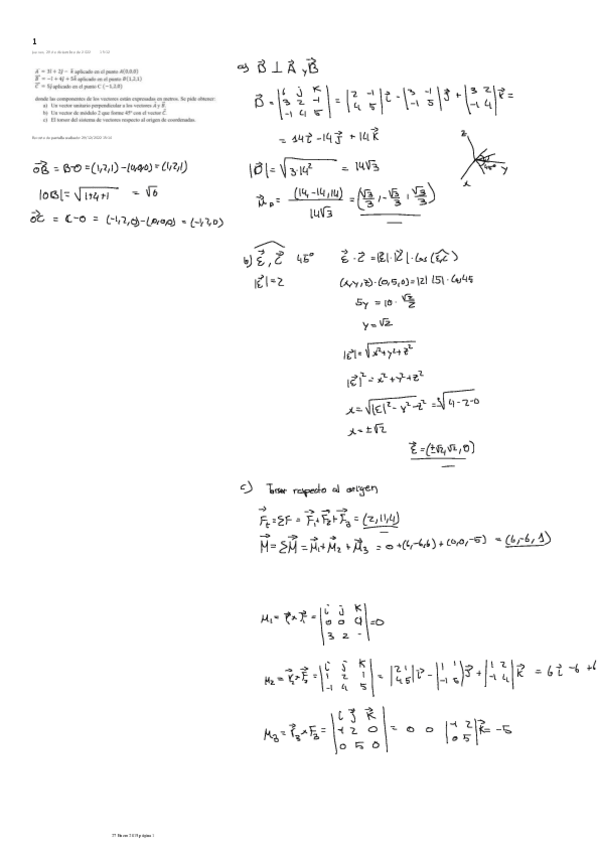 1
A⃗ = 3i + 2j − k aplicado en el punto A(0,0,0)
B⃗ = −i + 4j + 5k aplicado en el punto B(1,2,1)
C⃗ = 5j aplicado en el punto C (−1,2,0)
donde las componentes de los vectores están expresadas en metros. Se pide obtener:
a) Un vector unitario perpendicular a los vectores A⃗ y B⃗.
b) Un vector de módulo 2 que forme 45° con el vector C⃗.
c) El tensor del sistema de vectores respecto al origen de coordenadas.
OB⃗ = B-O = (1,2,1) - (0,0,0) = (1,2,1)
|OB| = √1+4+1 = √6
OC⃗ = C-O = (-1,2,0) - (0,0,0) = (-1,2,0)
a) B⃗ ⊥ A⃗ y B⃗
D⃗ = |i j k; 3 2 -1; -1 4 5| = |2 -1; 4 5| i⃗ - |3 -1; -1 5| j⃗ + |3 2; -1 4| k⃗ =
= 14 i⃗ - 14 j⃗ + 14 k⃗
|D⃗| = √3·14² = 14√3
μ⃗D = (14, -14, 14) / 14√3 = (√3/3, -√3/3, √3/3)
z
45°
y
x
b) E⃗, C⃗ 45°
E⃗ · C⃗ = |E⃗| · |C⃗| · cos(E,C)
|E⃗| = 2
(x,y,z) · (0,5,0) = |2| |5| · cos 45
5y = 10 · √2/2
y = √2
|E⃗| = √x²+y²+z²
|E⃗|² = x²+y²+z²
x = √|E|² - y² - z² = √4-2-0
x = ±√2
E⃗ = (±√2, √2, 0)
c) Tensor respecto al origen
F⃗t = ΣF = F⃗1 + F⃗2 + F⃗3 = (2,11,4)
M⃗ = ΣM⃗ = M⃗1 + M⃗2 + M⃗3 = 0 + (6,-6,6) + (0,0,-5) = (6,-6,1)
M1 = r⃗ x F⃗ = |i j k; 0 0 0; 3 2 -| = 0
M2 = r⃗2 x F⃗2 = |i j k; 1 2 1; -1 4 5| = |2 1; 4 5| i⃗ - |1 1; -1 5| j⃗ + |1 2; -1 4| k⃗ = 6 i⃗ - 6 + 6
M3 = r⃗3 x F3 = |i⃗ j⃗ k⃗; -1 2 0; 0 5 0| = 0 0 |-1 2; 0 5| k⃗ = -5